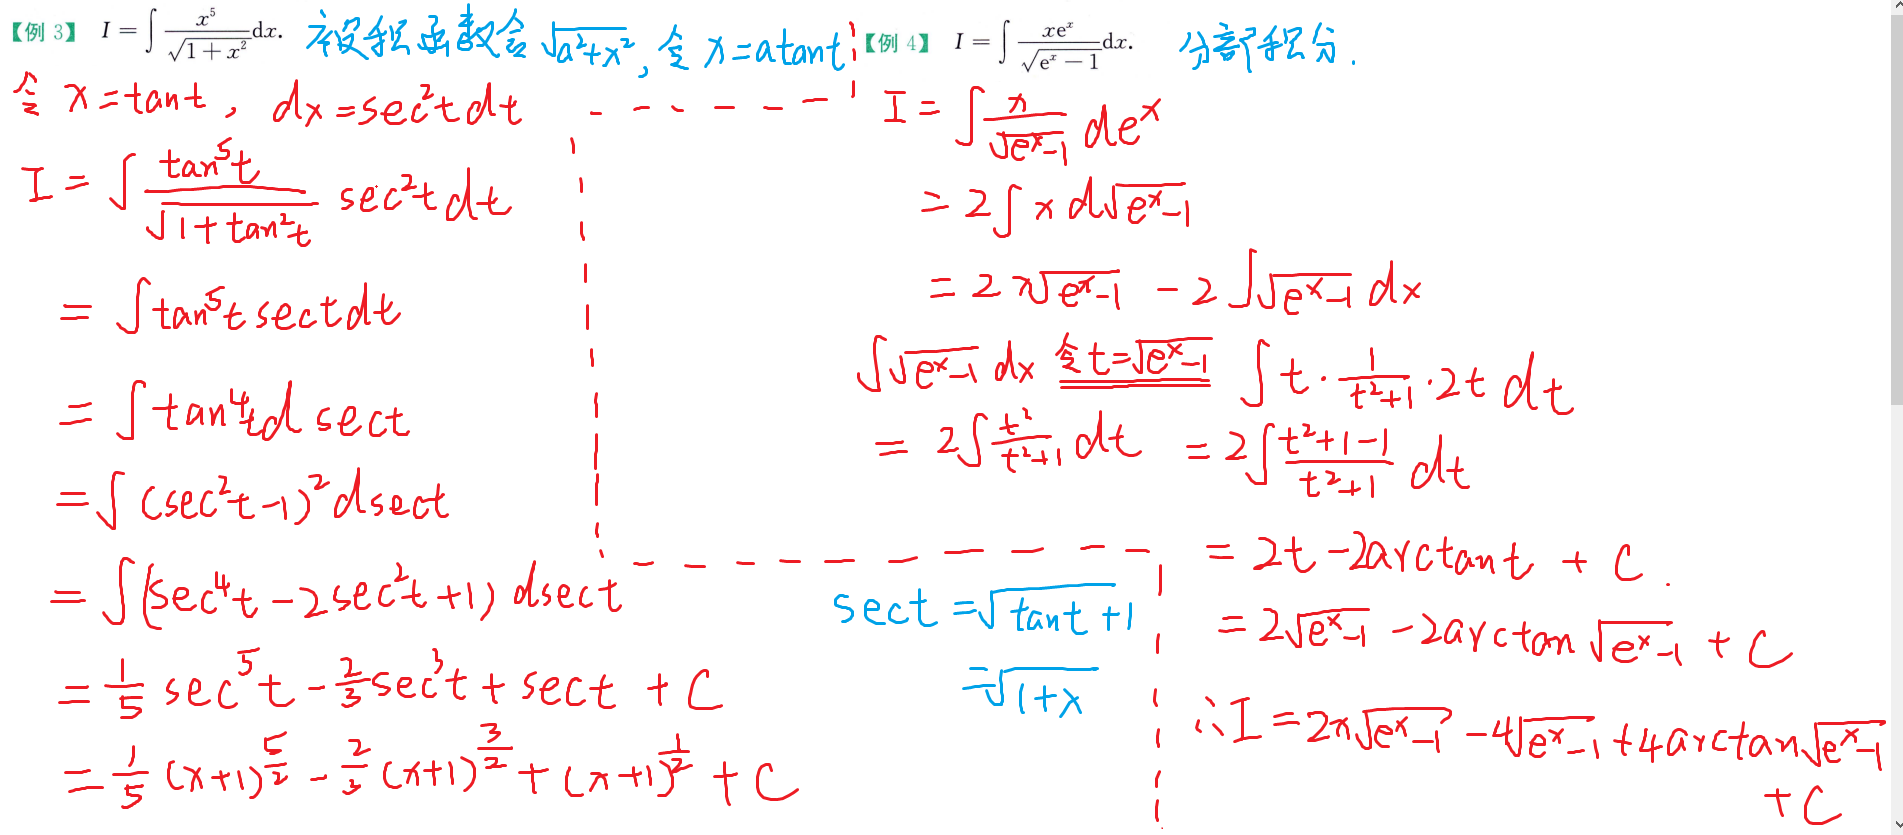 【例 3】 I = ∫ x⁵/√(1 + x²) dx. 被积函数含√(a²+x²), 令 x=atant
令 x=tant, dx=sec²tdt
I = ∫ tan⁵t/√(1+tan²t) sec²tdt
= ∫tan⁵t sectdt
= ∫tan⁴td sect
= ∫(sec²t-1)²dsect
= ∫(sec⁴t-2sec²t+1) dsect
= 1/5 sec⁵t - 2/3 sec³t + sect + C
= 1/5 (x+1)^(5/2) - 2/3 (x+1)^(3/2) + (x+1)^(1/2) + C
sect = √(tant+1)
= √(1+x)
【例 4】 I = ∫ xeˣ/√(eˣ − 1) dx. 分部积分.
I = ∫ x/√(eˣ-1) deˣ
= 2∫ x d√(eˣ-1)
= 2x√(eˣ-1) - 2∫√(eˣ-1) dx
∫√(eˣ-1) dx 令t=√(eˣ-1) ∫ t · 1/(t²+1) · 2t dt
= 2∫ t²/(t²+1) dt = 2∫ (t²+1-1)/(t²+1) dt
= 2t - 2arctant + C.
= 2√(eˣ-1) - 2arctan√(eˣ-1) + C
∴ I = 2x√(eˣ-1) - 4√(eˣ-1) + 4arctan√(eˣ-1)
+ C